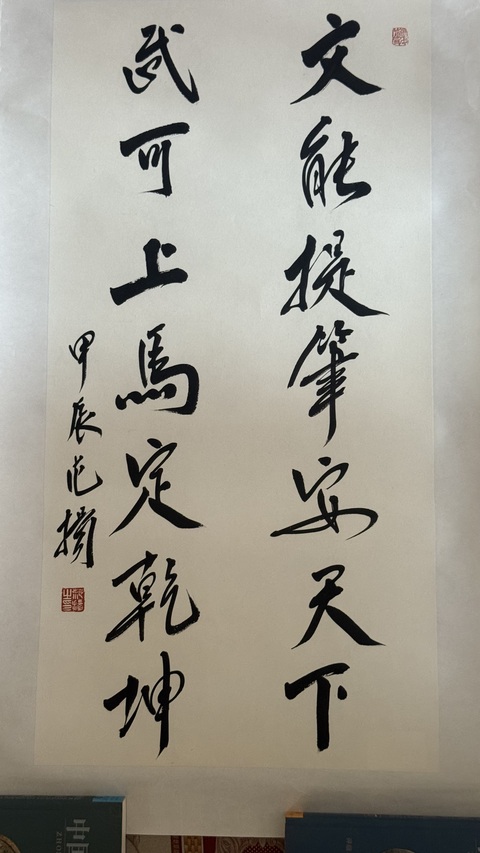 文能提筆安天下
武可上馬定乾坤
甲辰